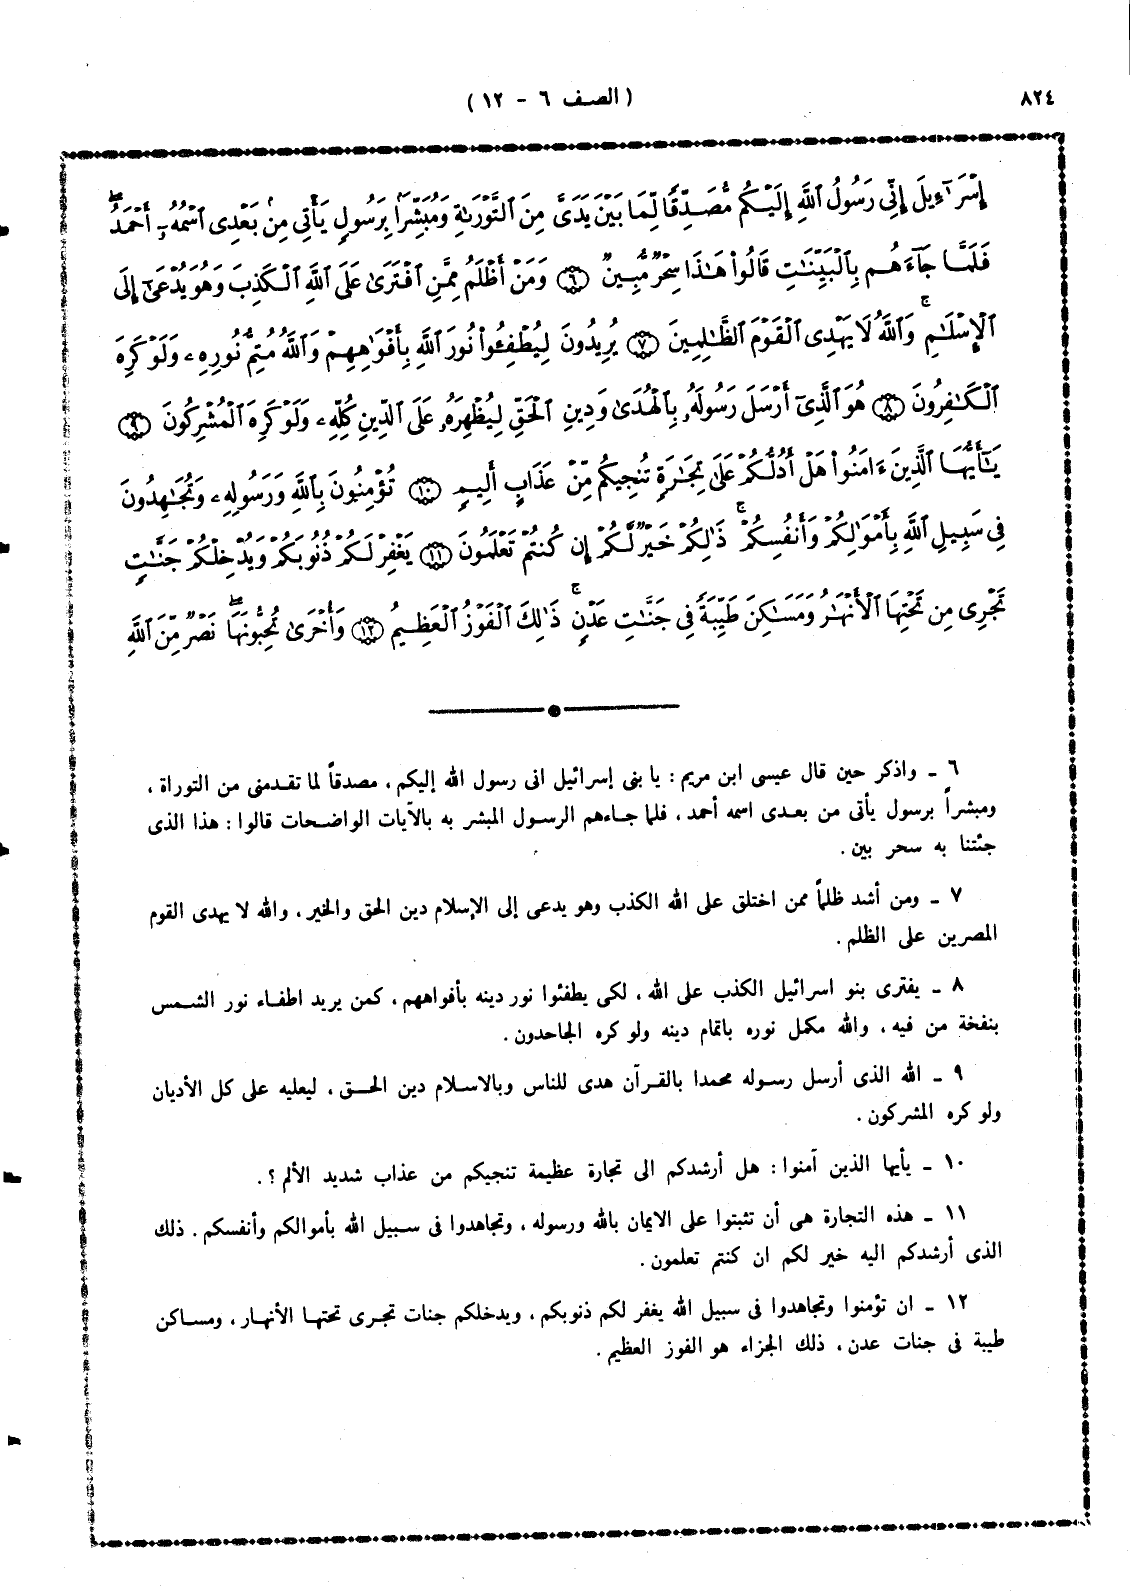 ٨٢٤
( الصف ٦ - ١٢ )
إِسْرَٰٓءِيلَ إِنِّى رَسُولُ ٱللَّهِ إِلَيْكُم مُّصَدِّقًا لِّمَا بَيْنَ يَدَىَّ مِنَ ٱلتَّوْرَىٰةِ وَمُبَشِّرًۢا بِرَسُولٍ يَأْتِى مِنۢ بَعْدِى ٱسْمُهُۥٓ أَحْمَدُ ۖ
فَلَمَّا جَآءَهُم بِٱلْبَيِّنَٰتِ قَالُوا۟ هَٰذَا سِحْرٌ مُّبِينٌ ٦ وَمَنْ أَظْلَمُ مِمَّنِ ٱفْتَرَىٰ عَلَى ٱللَّهِ ٱلْكَذِبَ وَهُوَ يُدْعَىٰٓ إِلَى
ٱلْإِسْلَٰمِ ۚ وَٱللَّهُ لَا يَهْدِى ٱلْقَوْمَ ٱلظَّٰلِمِينَ ٧ يُرِيدُونَ لِيُطْفِـُٔوا۟ نُورَ ٱللَّهِ بِأَفْوَٰهِهِمْ وَٱللَّهُ مُتِمُّ نُورِهِۦ وَلَوْ كَرِهَ
ٱلْكَٰفِرُونَ ٨ هُوَ ٱلَّذِىٓ أَرْسَلَ رَسُولَهُۥ بِٱلْهُدَىٰ وَدِينِ ٱلْحَقِّ لِيُظْهِرَهُۥ عَلَى ٱلدِّينِ كُلِّهِۦ وَلَوْ كَرِهَ ٱلْمُشْرِكُونَ ٩
يَٰٓأَيُّهَا ٱلَّذِينَ ءَامَنُوا۟ هَلْ أَدُلُّكُمْ عَلَىٰ تِجَٰرَةٍ تُنجِيكُم مِّنْ عَذَابٍ أَلِيمٍ ١٠ تُؤْمِنُونَ بِٱللَّهِ وَرَسُولِهِۦ وَتُجَٰهِدُونَ
فِى سَبِيلِ ٱللَّهِ بِأَمْوَٰلِكُمْ وَأَنفُسِكُمْ ۚ ذَٰلِكُمْ خَيْرٌ لَّكُمْ إِن كُنتُمْ تَعْلَمُونَ ١١ يَغْفِرْ لَكُمْ ذُنُوبَكُمْ وَيُدْخِلْكُمْ جَنَّٰتٍ
تَجْرِى مِن تَحْتِهَا ٱلْأَنْهَٰرُ وَمَسَٰكِنَ طَيِّبَةً فِى جَنَّٰتِ عَدْنٍ ۚ ذَٰلِكَ ٱلْفَوْزُ ٱلْعَظِيمُ ١٢ وَأُخْرَىٰ تُحِبُّونَهَا ۖ نَصْرٌ مِّنَ ٱللَّهِ
٦ ـ واذكر حين قال عيسى ابن مريم : يا بنى إسرائيل انى رسول الله إليكم ، مصدقاً لما تقدمنى من التوراة ،
ومبشراً برسول يأتى من بعدى اسمه أحمد ، فلما جاءهم الرسول المبشر به بالآيات الواضحات قالوا : هذا الذى
جئتنا به سحر بين .
٧ ـ ومن أشد ظلماً ممن اختلق على الله الكذب وهو يدعى إلى الإسلام دين الحق والخير ، والله لا يهدى القوم
المصرين على الظلم .
٨ ـ يفترى بنو اسرائيل الكذب على الله ، لكى يطفئوا نور دينه بأفواههم ، كمن يريد اطفاء نور الشمس
بنفخة من فيه ، والله مكمل نوره باتمام دينه ولو كره الجاحدون .
٩ ـ الله الذى أرسل رسوله محمدا بالقرآن هدى للناس وبالاسلام دين الحق ، ليعليه على كل الأديان
ولو كره المشركون .
١٠ ـ يأيها الذين آمنوا : هل أرشدكم الى تجارة عظيمة تنجيكم من عذاب شديد الألم ؟ .
١١ ـ هذه التجارة هى أن تثبتوا على الايمان بالله ورسوله ، وتجاهدوا فى سبيل الله بأموالكم وأنفسكم . ذلك
الذى أرشدكم اليه خير لكم ان كنتم تعلمون .
١٢ ـ ان تؤمنوا وتجاهدوا فى سبيل الله يغفر لكم ذنوبكم ، ويدخلكم جنات تجرى تحتها الأنهار ، ومساكن
طيبة فى جنات عدن ، ذلك الجزاء هو الفوز العظيم .